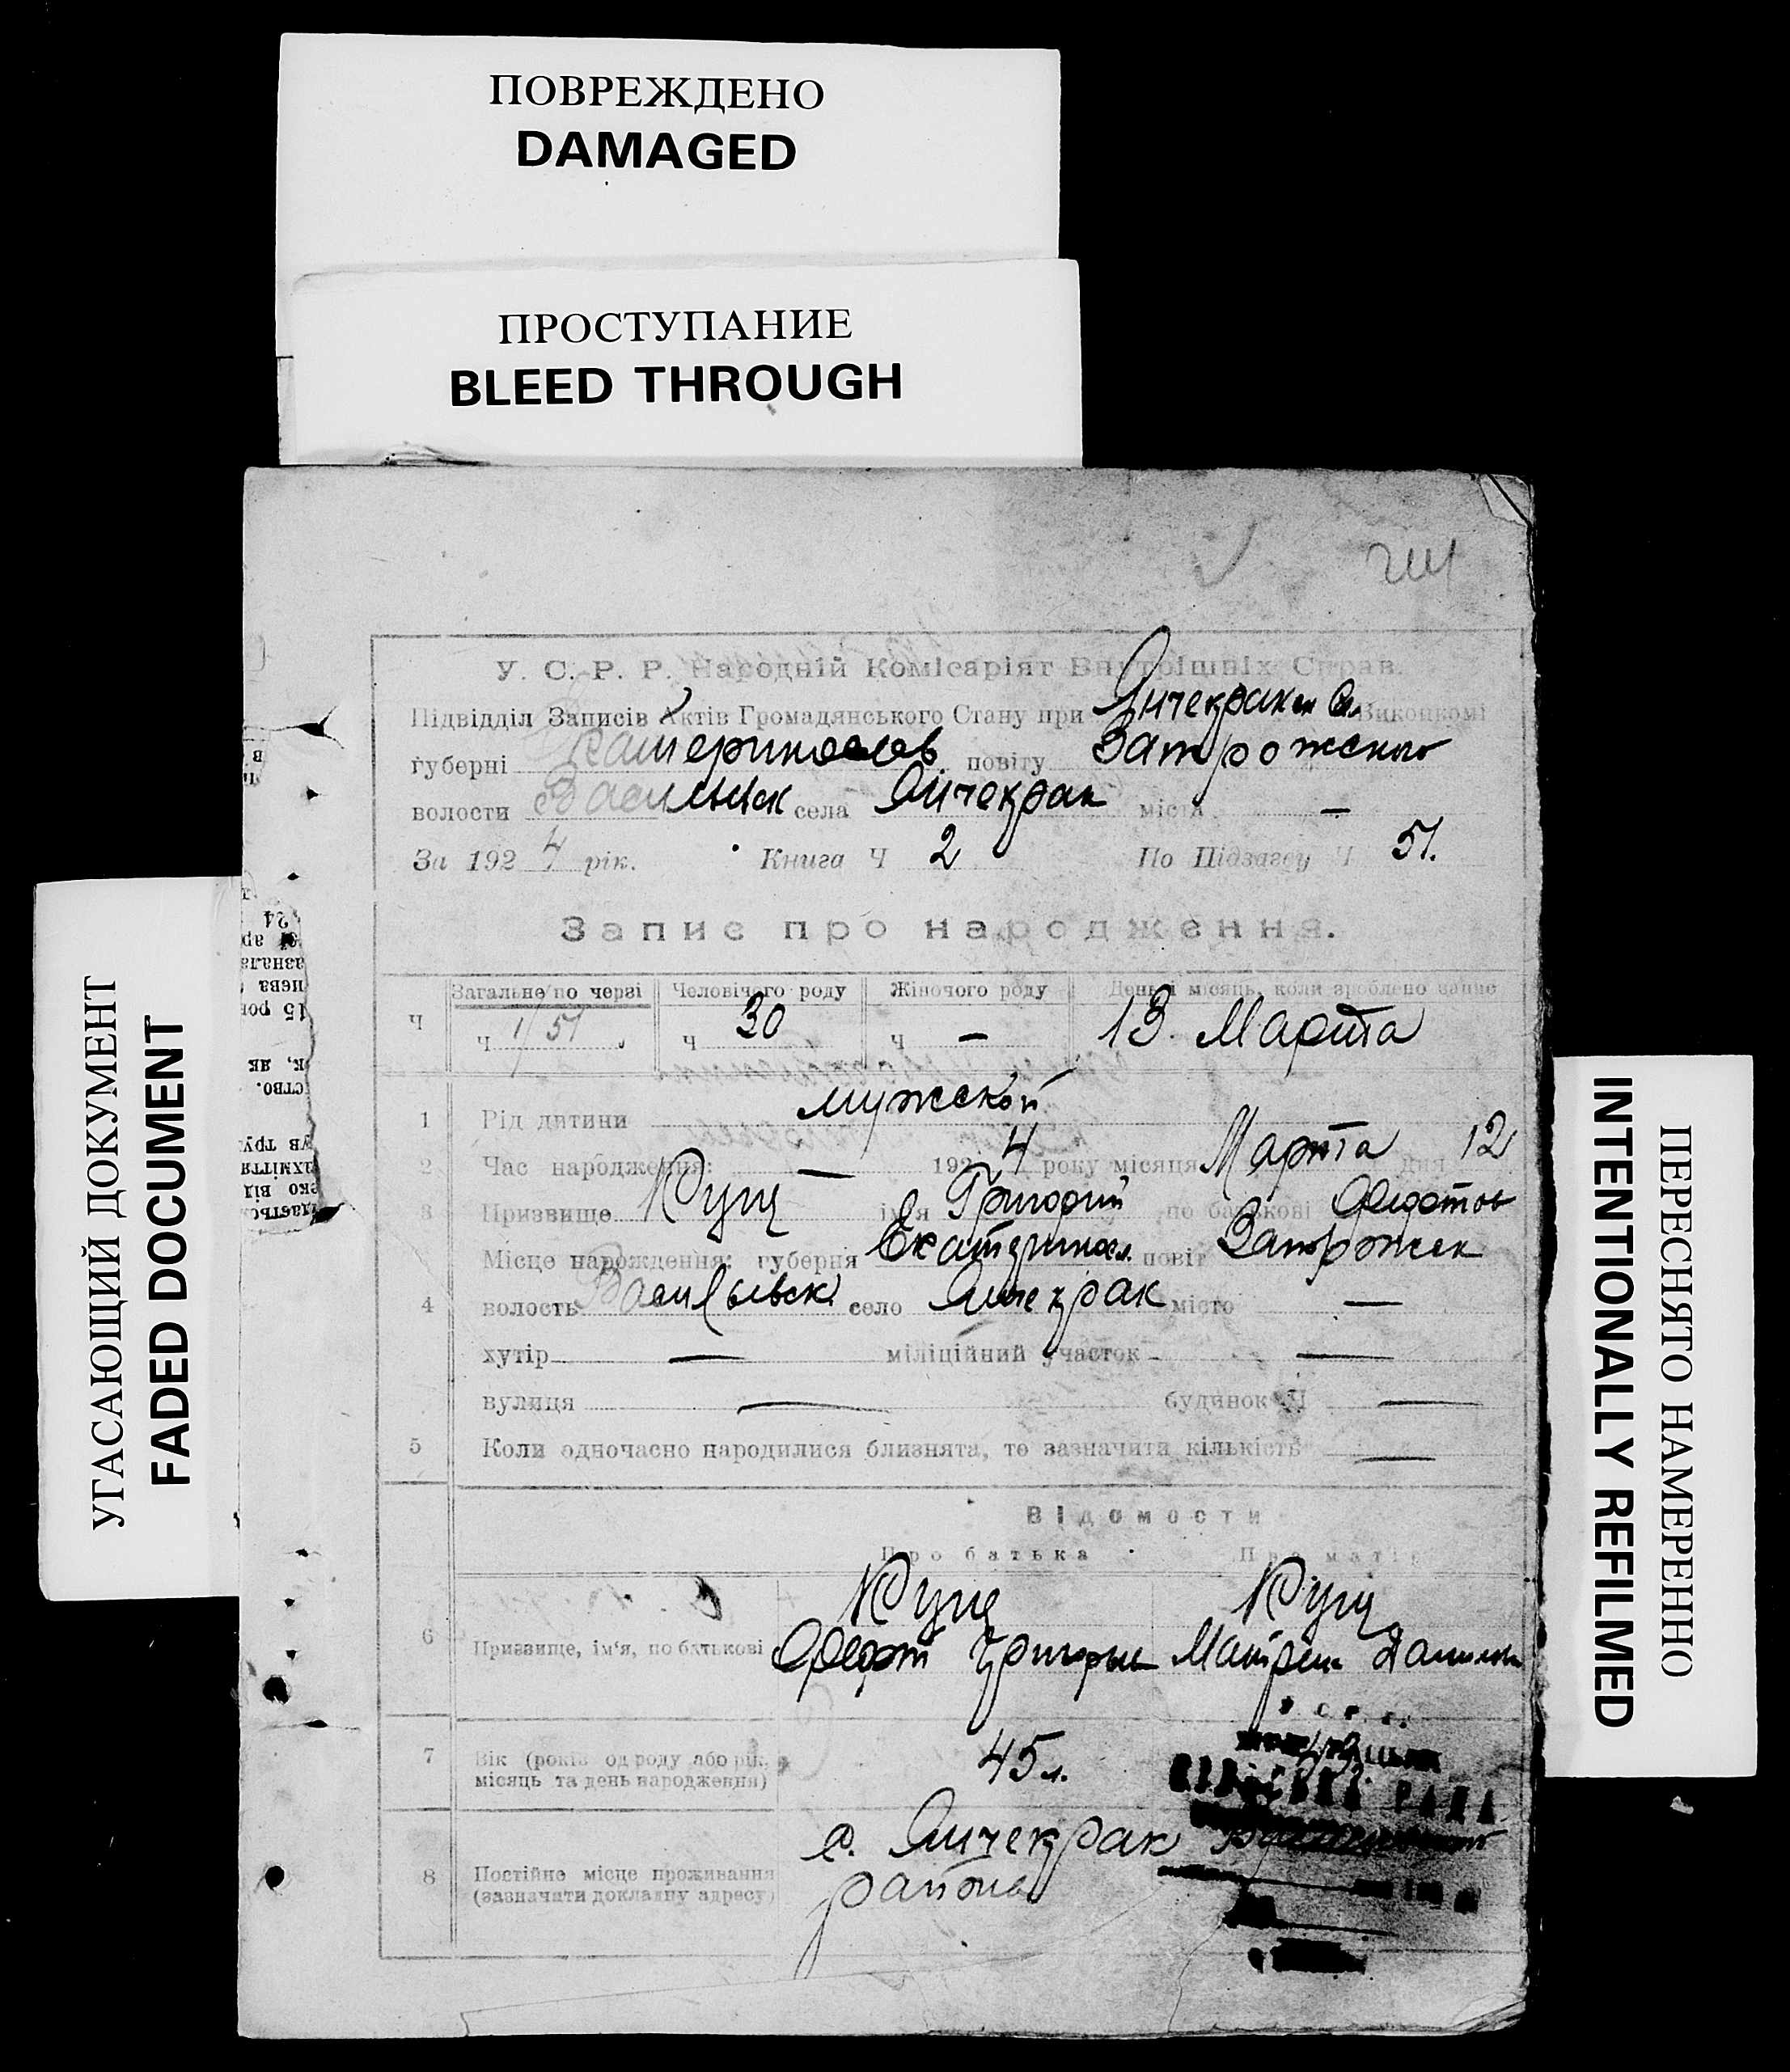 ПОВРЕЖДЕНО
DAMAGED
ПРОСТУПАНИЕ
BLEED THROUGH
УГАСАЮЩИЙ ДОКУМЕНТ
FADED DOCUMENT
ПЕРЕСНЯТО НАМЕРЕННО
INTENTIONALLY REFILMED
У. С. Р. Р. Народній Комісаріят Внутрішніх Справ.
Підвідділ Записів Актів Громадянського Стану при Янчекрак Виконкомі
губерні Екатеринослав повіту Запорожского
волости села Янчекрак міста —
За 1924 рік. Книга Ч 2 По Підзагсу Ч 51.
Запис про народження.
Ч Загальне по черзі Человічого роду Жіночого роду День і місяць, коли зроблено запис
Ч 1/51 Ч 30 Ч — 13. Марта
1 Рід дитини мужской
2 Час народження: — 1924 року місяця Марта дня 12
3 Призвище Кущ ім'я Григорий по батькові Федотов
Місце народження: губерня Екатериносл. повіт Запорожск
4 волость Васильевск село Янчекрак місто —
хутір — міліційний участок —
вулиця — будинок Ч —
5 Коли одночасно народилися близнята, то зазначити кількість —
Відомости
Про батька Про матір
6 Призвище, ім'я, по батькові Кущ Кущ
Федот Григорьев Матрена Данилов
7 Вік (років од роду або рік, місяць та день народження) 45 л.
РАДА
8 Постійне місце проживання (зазначати докладну адресу) с. Янчекрак
района